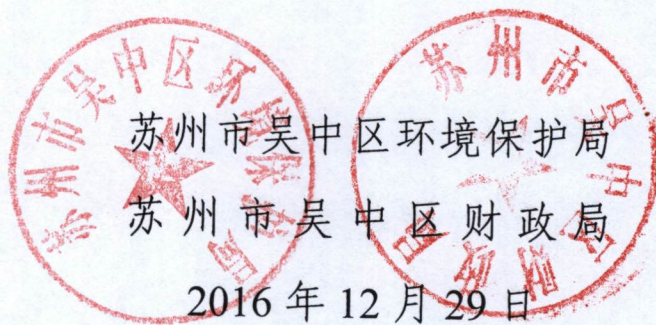 苏州市吴中区环境保护局
苏州市吴中区财政局
2016年12月29日
苏州市吴中区环境保护局
苏州市吴中区财政局